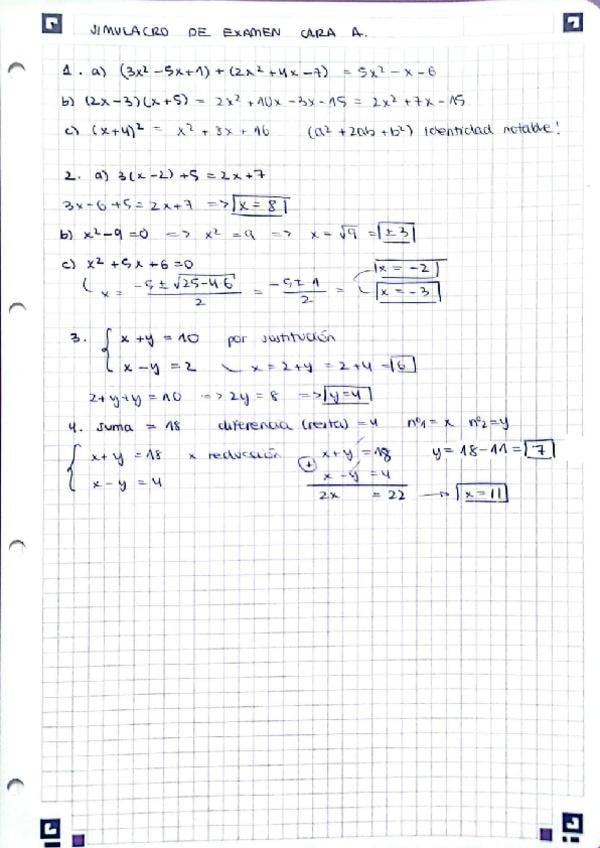 SIMULACRO DE EXAMEN CARA A.
1. a) (3x² - 5x + 1) + (2x² + 4x - 7) = 5x² - x - 6
b) (2x - 3)(x + 5) = 2x² + 10x - 3x - 15 = 2x² + 7x - 15
c) (x + 4)² = x² + 8x + 16 (a² + 2ab + b²) Identidad notable!
2. a) 3(x - 2) + 5 = 2x + 7
3x - 6 + 5 = 2x + 7 => x = 8
b) x² - 9 = 0 => x² = 9 => x = √9 = ±3
c) x² + 5x + 6 = 0
x = (-5 ± √25 - 4·6)/2 = (-5 ± 1)/2 = x = -2
x = -3
3. { x + y = 10 por sustitución
x - y = 2 x = 2 + y = 2 + 4 = 6
2 + y + y = 10 => 2y = 8 => y = 4
4. suma = 18 diferencia (resta) = 4 nº1 = x nº2 = y
{ x + y = 18 x reducción x + y = 18 y = 18 - 11 = 7
x - y = 4 + x - y = 4
2x = 22 → x = 11